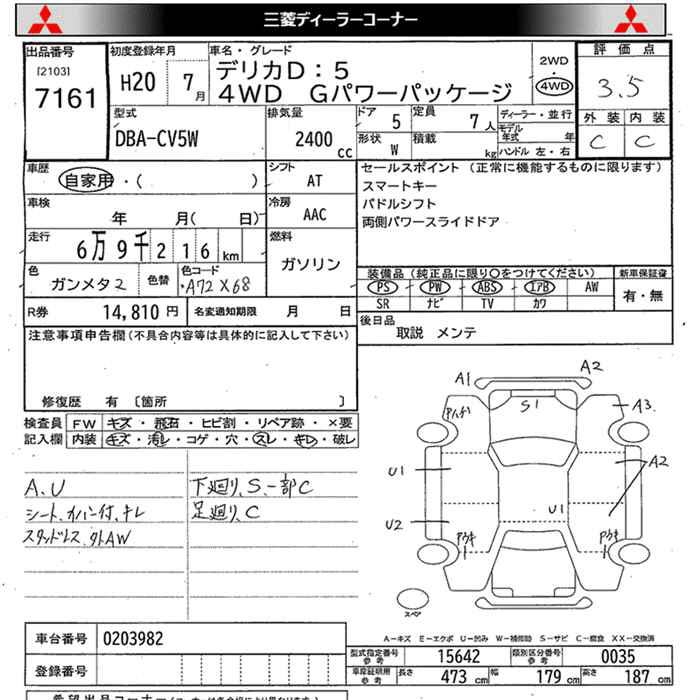 三菱ディーラーコーナー
出品番号
[2103]
7161
初度登録年月
H20 7月
車名・グレード
デリカD:5
4WD Gパワーパッケージ
2WD
4WD
評価点
3.5
外装 内装
C C
型式
DBA-CV5W
排気量
2400 cc
ドア 5
定員 7人
ディーラー・並行
モデル年式 年
形状 W
積載 kg
ハンドル 左・右
車歴
自家用・( )
シフト
AT
セールスポイント (正常に機能するものに限ります)
スマートキー
パドルシフト
両側パワースライドドア
車検
年 月( 日)
冷房
AAC
走行
6万9千216km
燃料
ガソリン
色
ガンメタ2
色替
色コード
A72X68
装備品(純正品に限り○をつけてください)
新車保証書
PS PW ABS エアB AW
SR ナビ TV カワ
有・無
R券 14,810円
名変通知期限 月 日
後日品
取説 メンテ
注意事項申告欄(不具合内容等は具体的に記入して下さい)
修復歴 有 [箇所 ]
検査員記入欄
FW キズ・飛石・ヒビ割・リペア跡・×要
内装 キズ・汚レ・コゲ・穴・スレ・キレ・破レ
A、U
シート、カバー付、キレ
スタッドレス、外AW
下廻り、S一部C
足廻り、C
A1
A2
S1
A3
U1
A2
U1
U2
アウキ
アウキ
スペア
A-キズ E-エクボ U-凹み W-補修跡 S-サビ C-腐食 XX-交換済
車台番号 0203982
登録番号
型式指定番号参考 15642
類別区分番号参考 0035
車庫証明用参考 長さ 473cm 幅 179cm 高さ 187cm